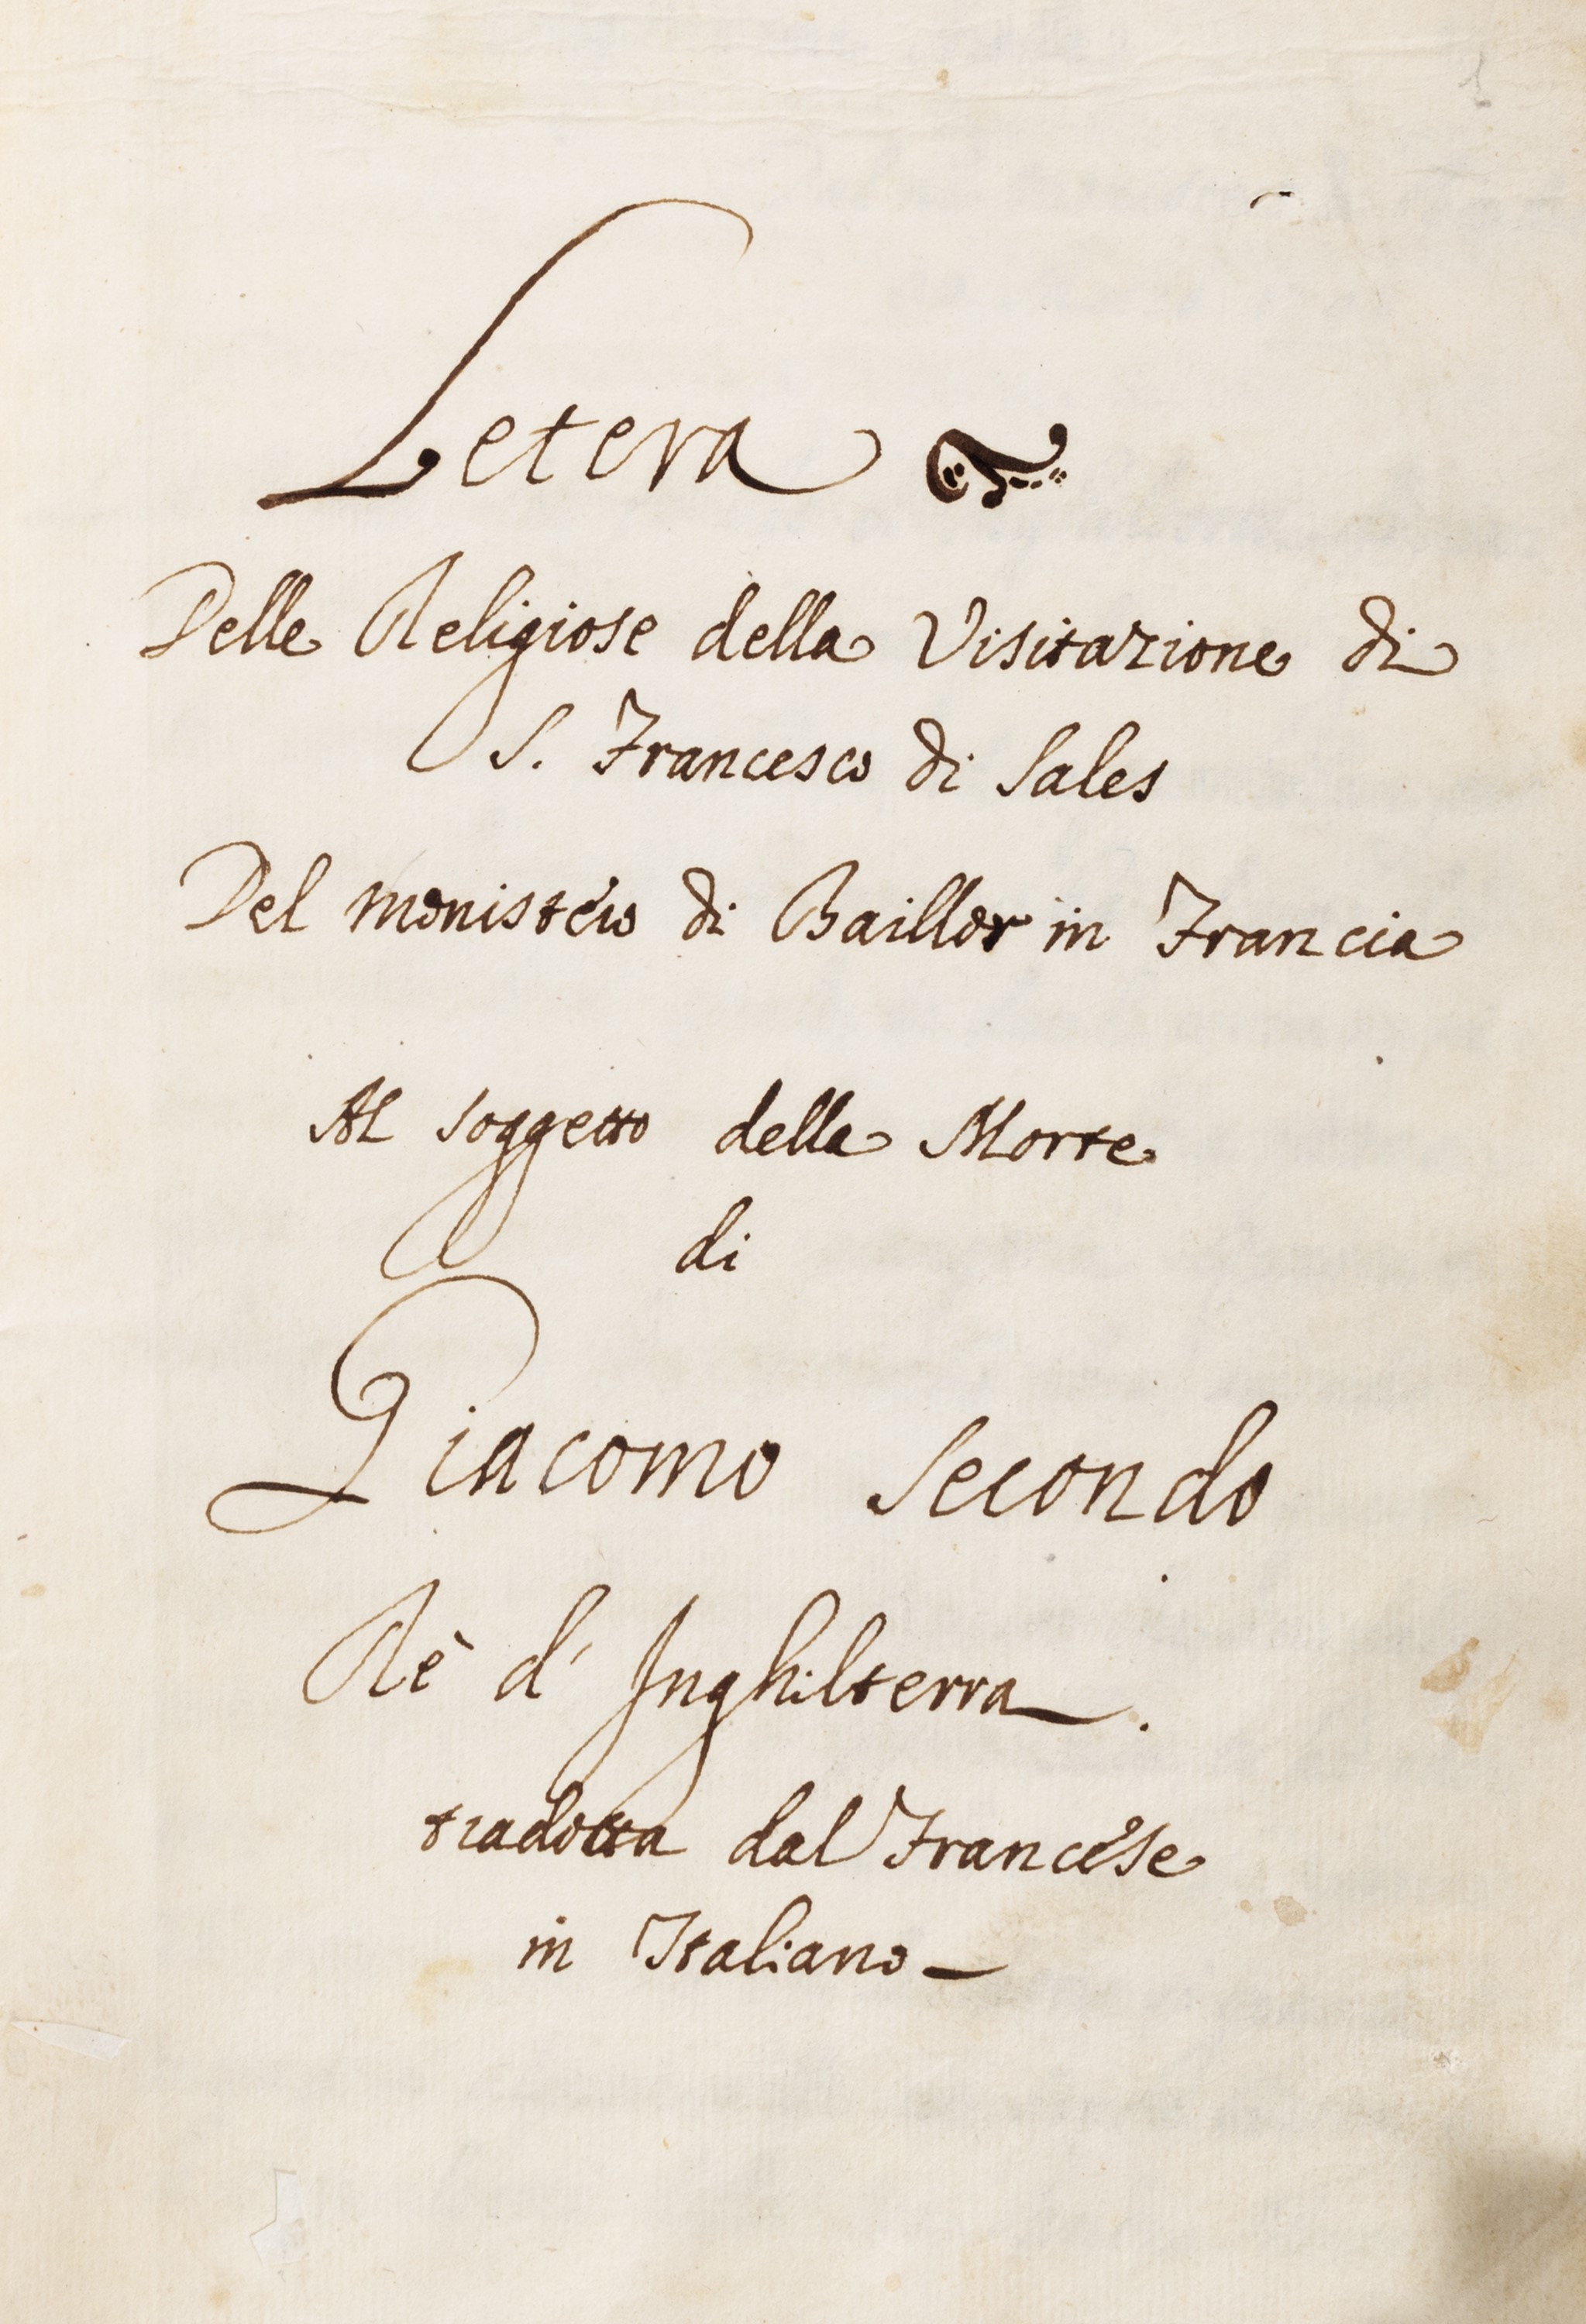 Letera
Delle Religiose della Visitazione di
S. Francesco di Sales
Del monistéro di Baillor in Francia
Al soggetto della Morte
di
Giacomo Secondo
Rè d' Inghilterra.
tradotta dal Francése
in Italiano